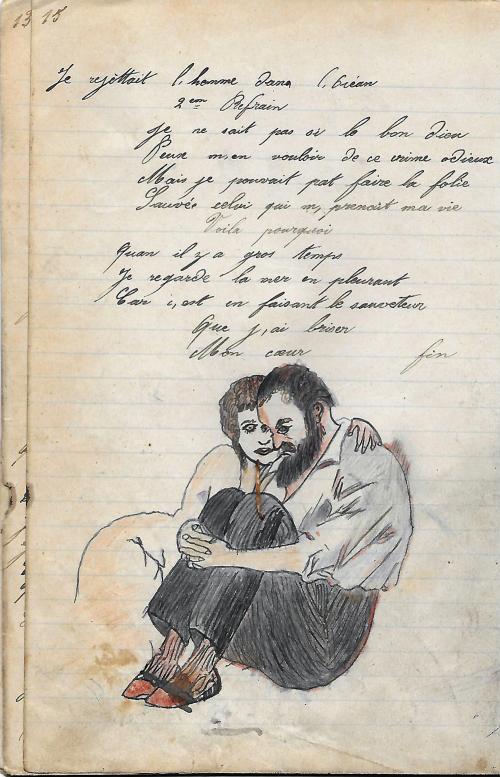 13 15
Je rejettait l,homme dans l,Océan
2em Refrain
Je ne sait pas si le bon dieu
Peux m,en vouloir de ce crime odieux
Mais je pouvait pat faire la folie
Sauvée celui qui m, prenait ma vie
Voila pourquoi
Quan il y a gros temps
Je regarde la mer en pleurant
Car c,est en faisant le sauveteur
Que j,ai briser
Mon cœur fin